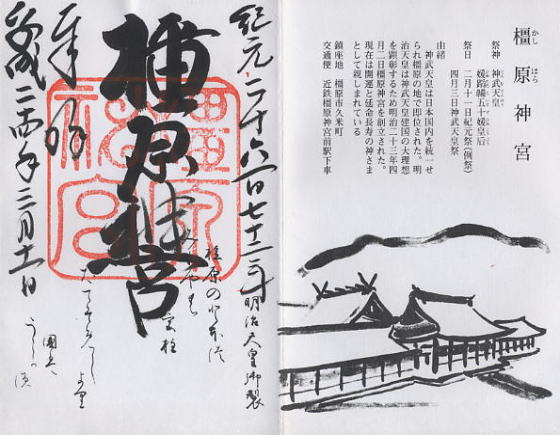 橿原神宮
かし はら
祭神 神武天皇
媛蹈鞴五十媛皇后
祭日 二月十一日紀元祭(例祭)
四月三日神武天皇祭
由緒
神武天皇は日本国内を統一せ
られ橿原の地で即位された。明
治天皇は神武天皇建国の大理想
を顕彰するため明治二十三年四
月二日橿原神宮を創立された。
現在は開運と延命長寿の神さま
として親しまれている
鎮座地 橿原市久米町
交通便 近鉄橿原神宮前駅下車
紀元二千六百七十二年
明治天皇御製
橿原の
宮柱
橿原神宮
橿原神宮
奉拝
平成二四年三月十一日